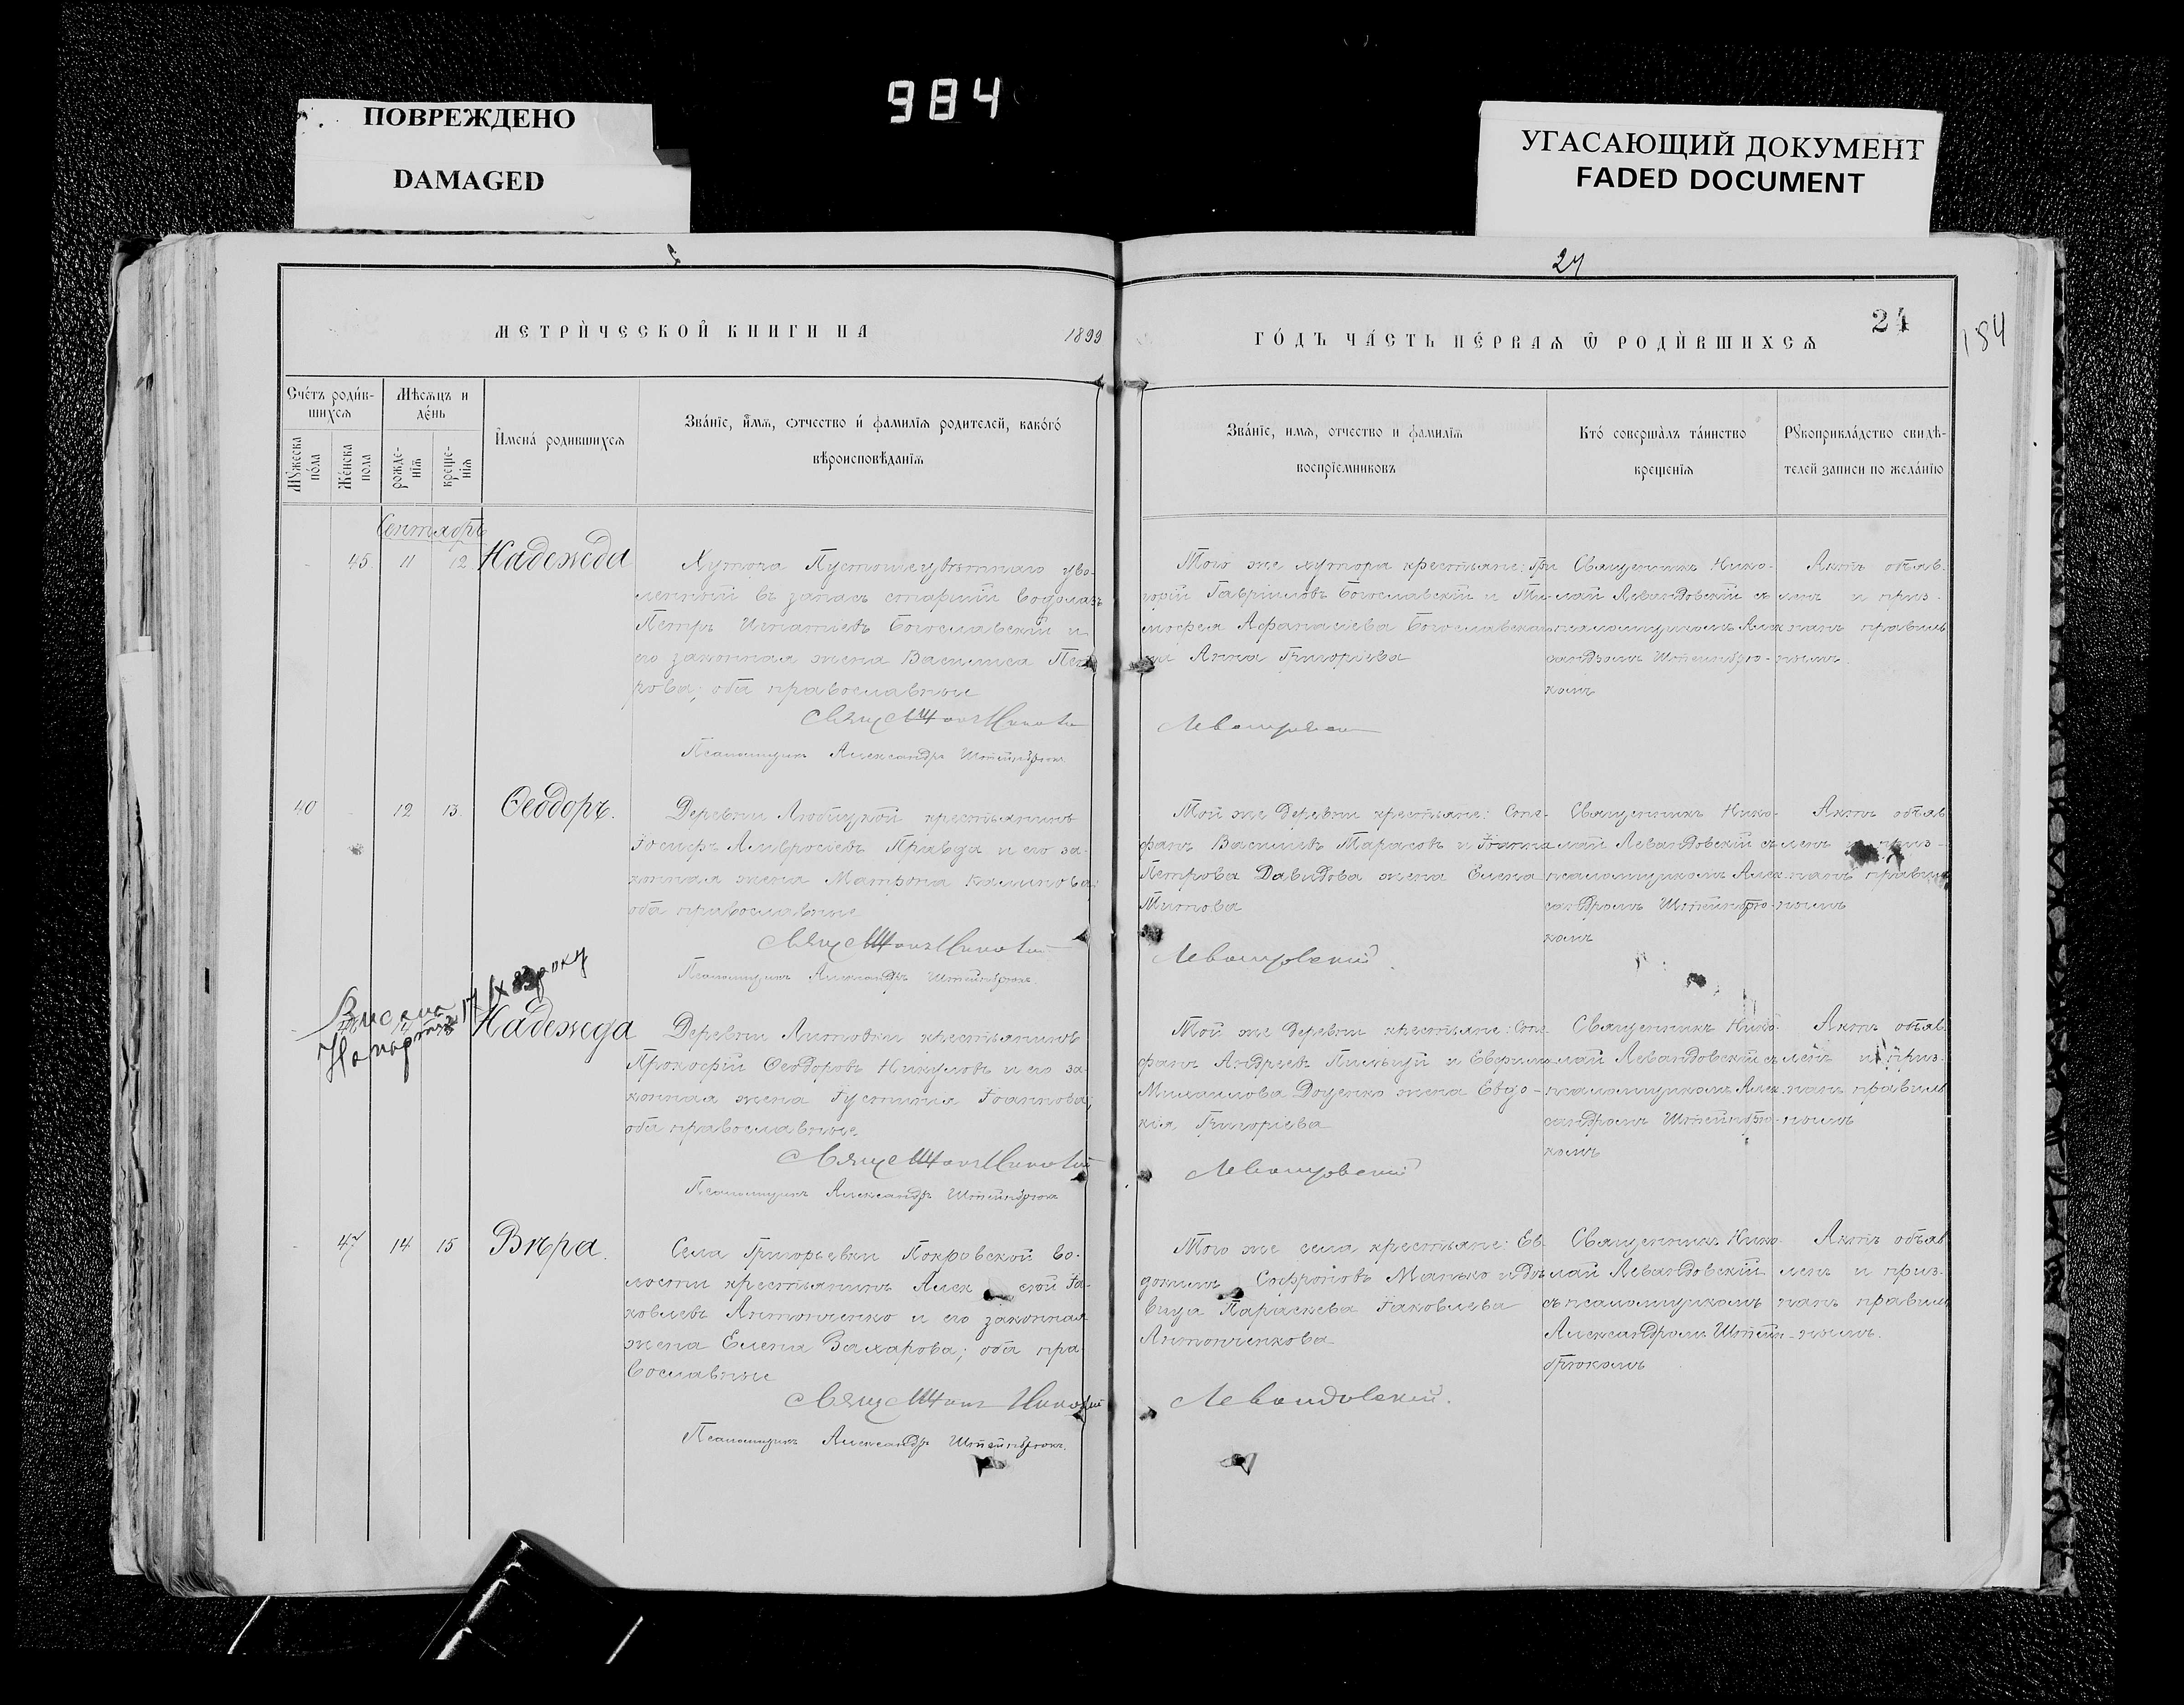 984
ПОВРЕЖДЕНО
DAMAGED
УГАСАЮЩИЙ ДОКУМЕНТ
FADED DOCUMENT
24
184
МЕТРИ́ЧЕСКОЙ КНИГИ НА 1899
ГО́ДЪ ЧА́СТЬ ПЕ́РВАѦ Ѿ РОДИ́ВШИХСѦ
Сче́тъ роди́в-
шихсѧ
Мѣсѧцъ и
де́нь
И҆мена́ родившихсѧ
Зва́нїе, и҆́мѧ, ѻтчество и҆ фамилїѧ родителей, како́го́
вѣроисповѣ́данїѧ
Мꙋжеска
по́ла
Же́нска
пола
рожде-
нїѧ
креще-
нїѧ
Зва́нїе, имѧ, отчество и фамилїѧ
воспрїемниковъ
Кто́ соверша́лъ та́инство
крещенїѧ
Рꙋкоприкла́дство свидѣ-
телей записи по жела́нїю
Сентябрь
45 11 12 Надежда
Хутора Пустошецвѣтнаго уво-
ленный въ запасъ старшій водолазъ
Петръ Игнатіевъ Богославскій и
его законная жена Василиса Пет
рова; оба православные
Псаломщикъ Александръ Штейнбрюкъ.
Того же хутора крестьяне: Гри
горій Гавріиловъ Богославскій и Ти-
мофея Афанасіева Богославскаго
Анна Григоріева
Священникъ Нико-
лай Левандовскій съ
псаломщикомъ Алек
сандромъ Штейнбрю-
комъ
Актъ объяв-
ленъ и приз-
нанъ правиль
нымъ
40 12 13 Ѳеодоръ.
Деревни Любицкой крестьянинъ
Іосифъ Амвросіевъ Правда и его за-
конная жена Матрона Калинова;
оба православные
Псаломщикъ Александръ Штейнбрюкъ.
Той же деревни крестьяне: Сте-
фанъ Василіевъ Тарасовъ и Іоанна
Петрова Давидова жена Елена
Титова
Левандовскій
Священникъ Нико-
лай Левандовскій съ
псаломщикомъ Алек
сандромъ Штейнбрю-
комъ
Актъ объяв
ленъ и приз-
нанъ правиль
нымъ
Надежда
Деревни Литовки крестьянинъ
Прокофій Ѳеодоровъ Никуловъ и его за
конная жена Іустинія Іоаннова;
оба православные
Псаломщикъ Александръ Штейнбрюкъ
Той же деревни крестьяне: Сте-
фанъ Андреевъ и
Михаилова Доценко жена Евдо-
кія Григоріева
Левандовскій
Священникъ Нико-
лай Левандовскій съ
псаломщикомъ Алек
сандромъ Штейнбрю-
комъ
Актъ объяв
ленъ и приз-
нанъ правиль
нымъ
47 14 15 Вѣра.
Села Григорьевки Покровской во-
лости крестьянинъ Алексѣй Іа-
ковлевъ Антонченко и его законная
жена Елена Захарова; оба пра
вославные
Псаломщикъ Александръ Штейнбрюкъ.
Того же села крестьяне: Ев-
докимъ Софроновъ Манько и дѣ
вица Параскева Іаковлева
Антонченкова
Левандовскій.
Священникъ Нико-
лай Левандовскій
съ псаломщикомъ
Александромъ Штейн-
брюкомъ
Актъ объяв
ленъ и приз-
нанъ правиль
нымъ.